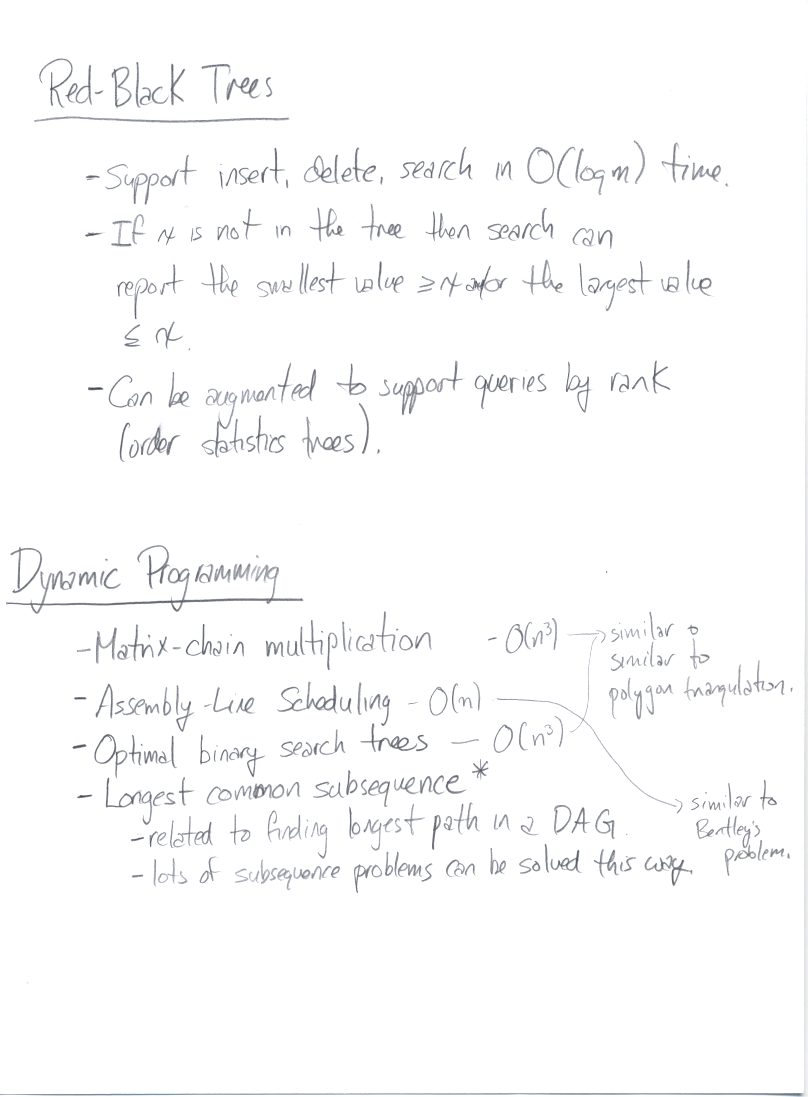 Red-Black Trees
- Support insert, delete, search in O(log n) time.
- If x is not in the tree then search can
report the smallest value ≥ x and/or the largest value
≤ x.
- Can be augmented to support queries by rank
(order statistics trees).
Dynamic Programming
- Matrix-chain multiplication - O(n³) → similar to
similar to
polygon triangulation.
- Assembly-Line Scheduling - O(n)
- Optimal binary search trees - O(n³)
- Longest common subsequence *
→ similar to
Bentley's
problem.
- related to finding longest path in a DAG.
- lots of subsequence problems can be solved this way.